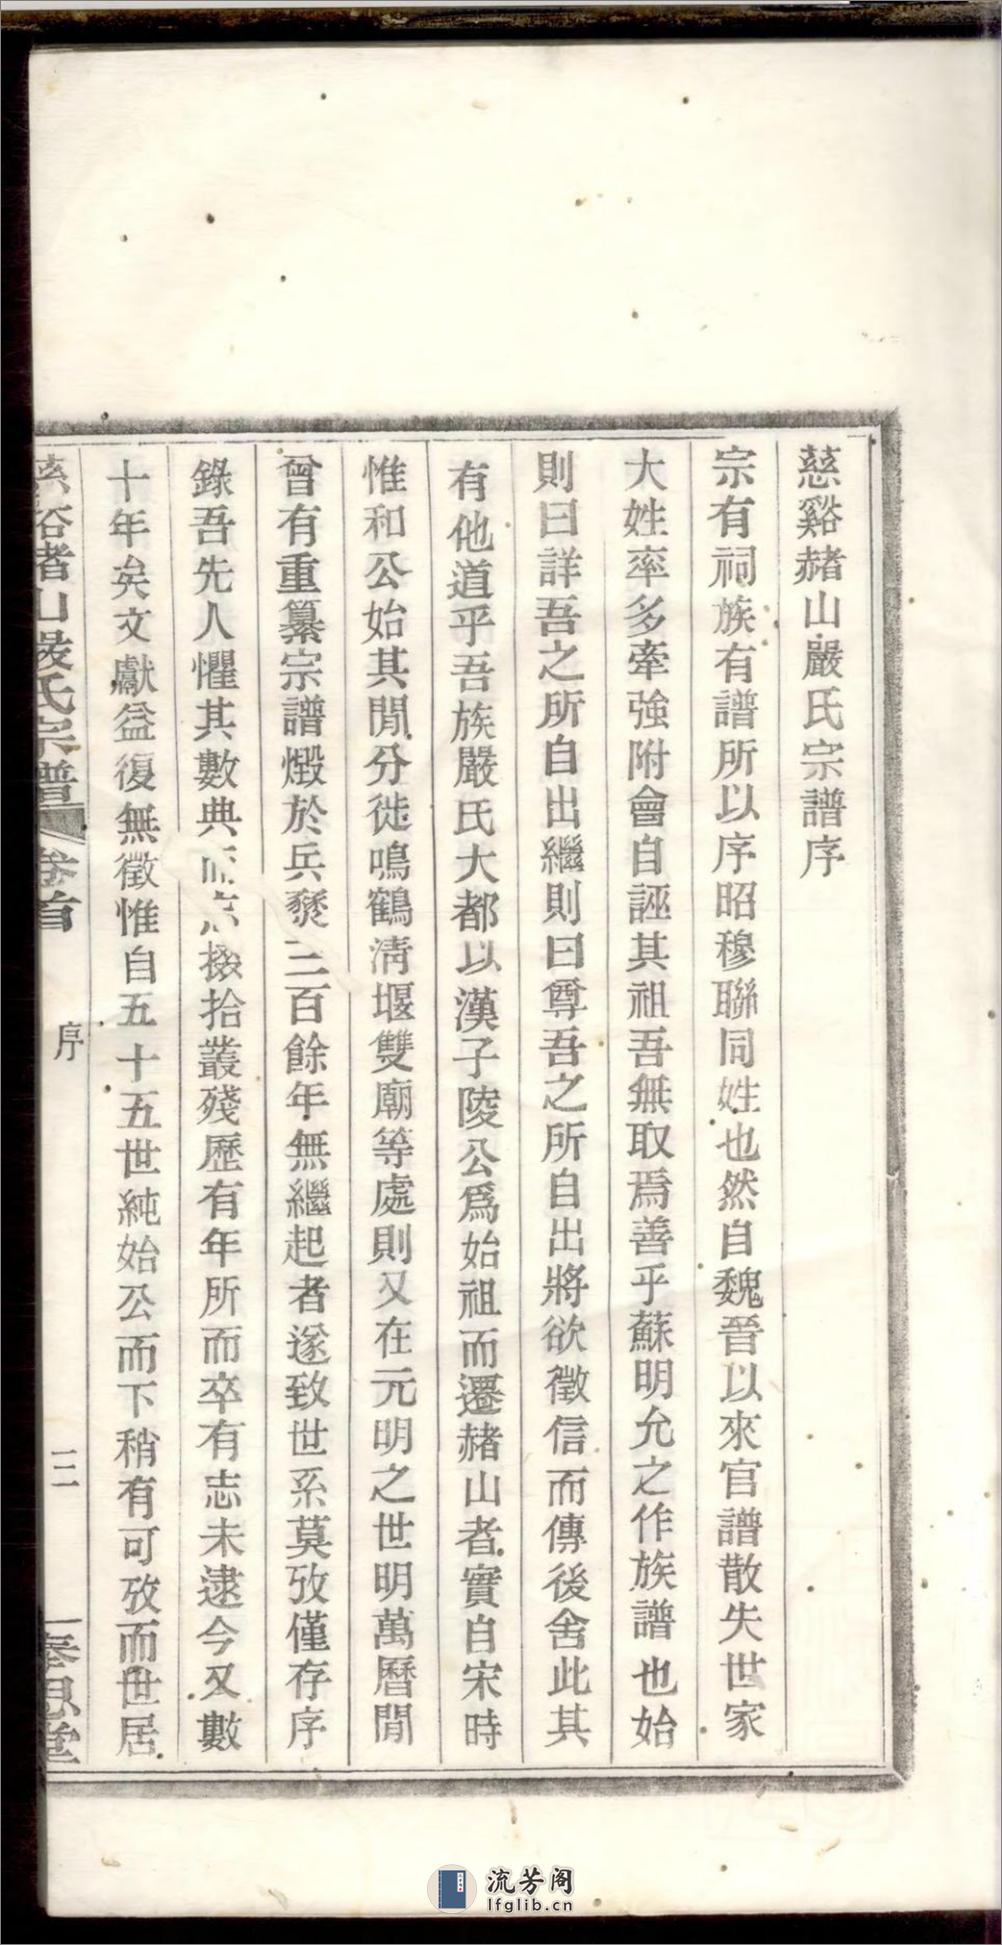 慈谿赭山嚴氏宗譜序
宗有祠族有譜所以序昭穆聯同姓也然自魏晉以來官譜散失世家
大姓率多牽強附會自誣其祖吾無取焉善乎蘇明允之作族譜也始
則曰詳吾之所自出繼則曰尊吾之所自出將欲徵信而傳後舍此其
有他道乎吾族嚴氏大都以漢子陵公爲始祖而遷赭山者實自宋時
惟和公始其閒分徙鳴鶴淸堰雙廟等處則又在元明之世明萬曆閒
曾有重纂宗譜燬於兵燹三百餘年無繼起者遂致世系莫攷僅存序
錄吾先人懼其數典而忘掇拾叢殘歷有年所而卒有志未逮今又數
十年矣文獻益復無徵惟自五十五世純始公而下稍有可攷而世居
慈谿赭山嚴氏宗譜 卷首 序 三
流芳阁
lfglib.cn